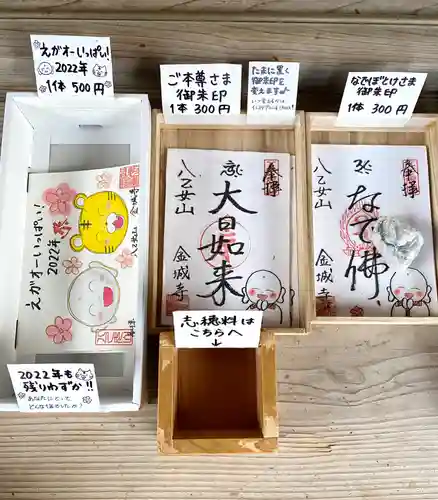 えがオーいっぱい!
2022年
1体 500円
ご本尊さま
御朱印
1体 300円
たまに置く
御朱印
変えます
なでぼとけさま
御朱印
1体 300円
えがオーいっぱい!
2022年
金城寺
八乙女山
奉拝
八乙女山
大日如来
金城寺
奉拝
八乙女山
なで佛
金城寺
志穂料は
こちらへ
↓
2022年も
残りわずか!!
あなたにとって
どんな1年でしたか?